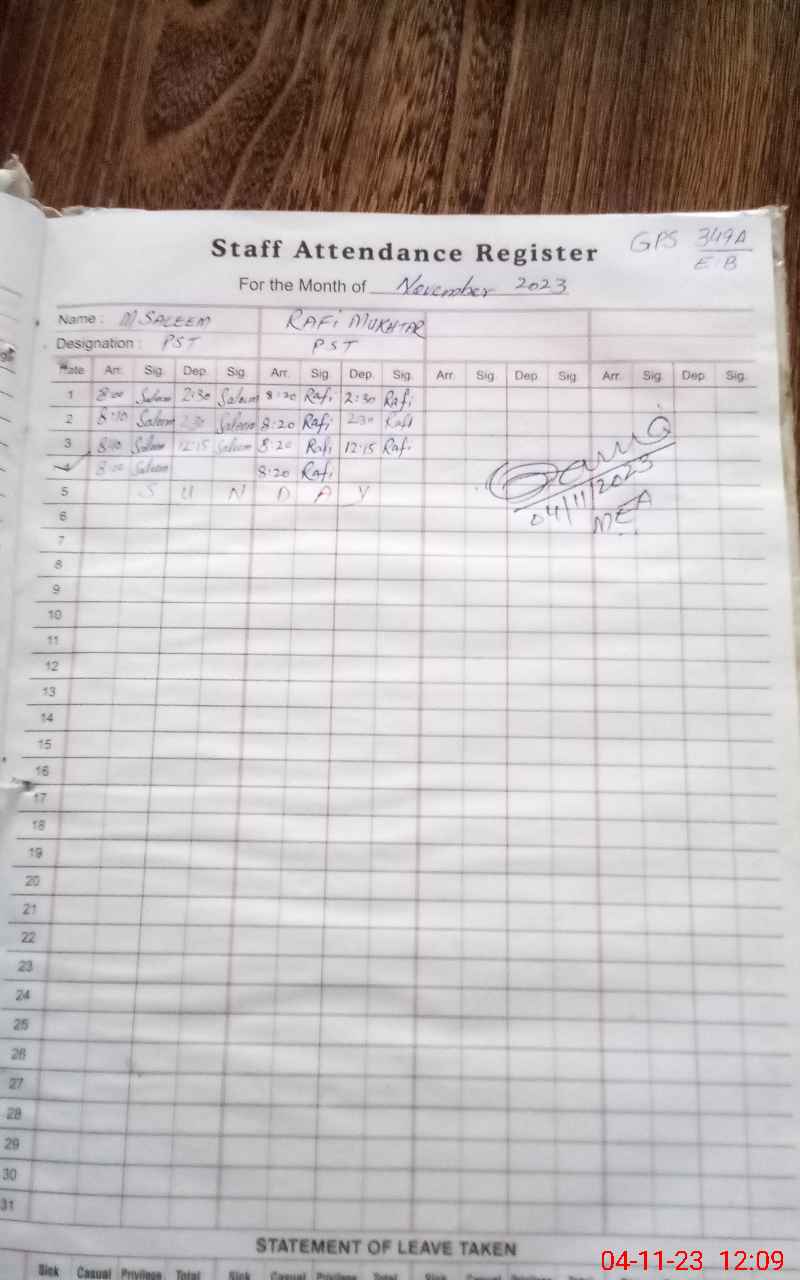 Staff Attendance Register
GPS 349A
E.B
For the Month of November 2023
Name : M SALEEM RAFI MUKHTAR
Designation : PST PST
Date Arr. Sig. Dep. Sig. Arr. Sig. Dep. Sig. Arr. Sig. Dep. Sig. Arr. Sig. Dep. Sig.
1 8:00 Saleem 2:30 Saleem 8:20 Rafi 2:30 Rafi
2 8:10 Saleem 2:30 Saleem 8:20 Rafi 2:30 Rafi
3 8:10 Saleem 12:15 Saleem 8:20 Rafi 12:15 Rafi
4 8:00 Saleem 8:20 Rafi
5 S U N D A Y
04/11/2023
MEA
6
7
8
9
10
11
12
13
14
15
16
17
18
19
20
21
22
23
24
25
26
27
28
29
30
31
STATEMENT OF LEAVE TAKEN
Sick Casual Privilege Total Sick Casual Privilege Total Sick Casual
04-11-23 12:09